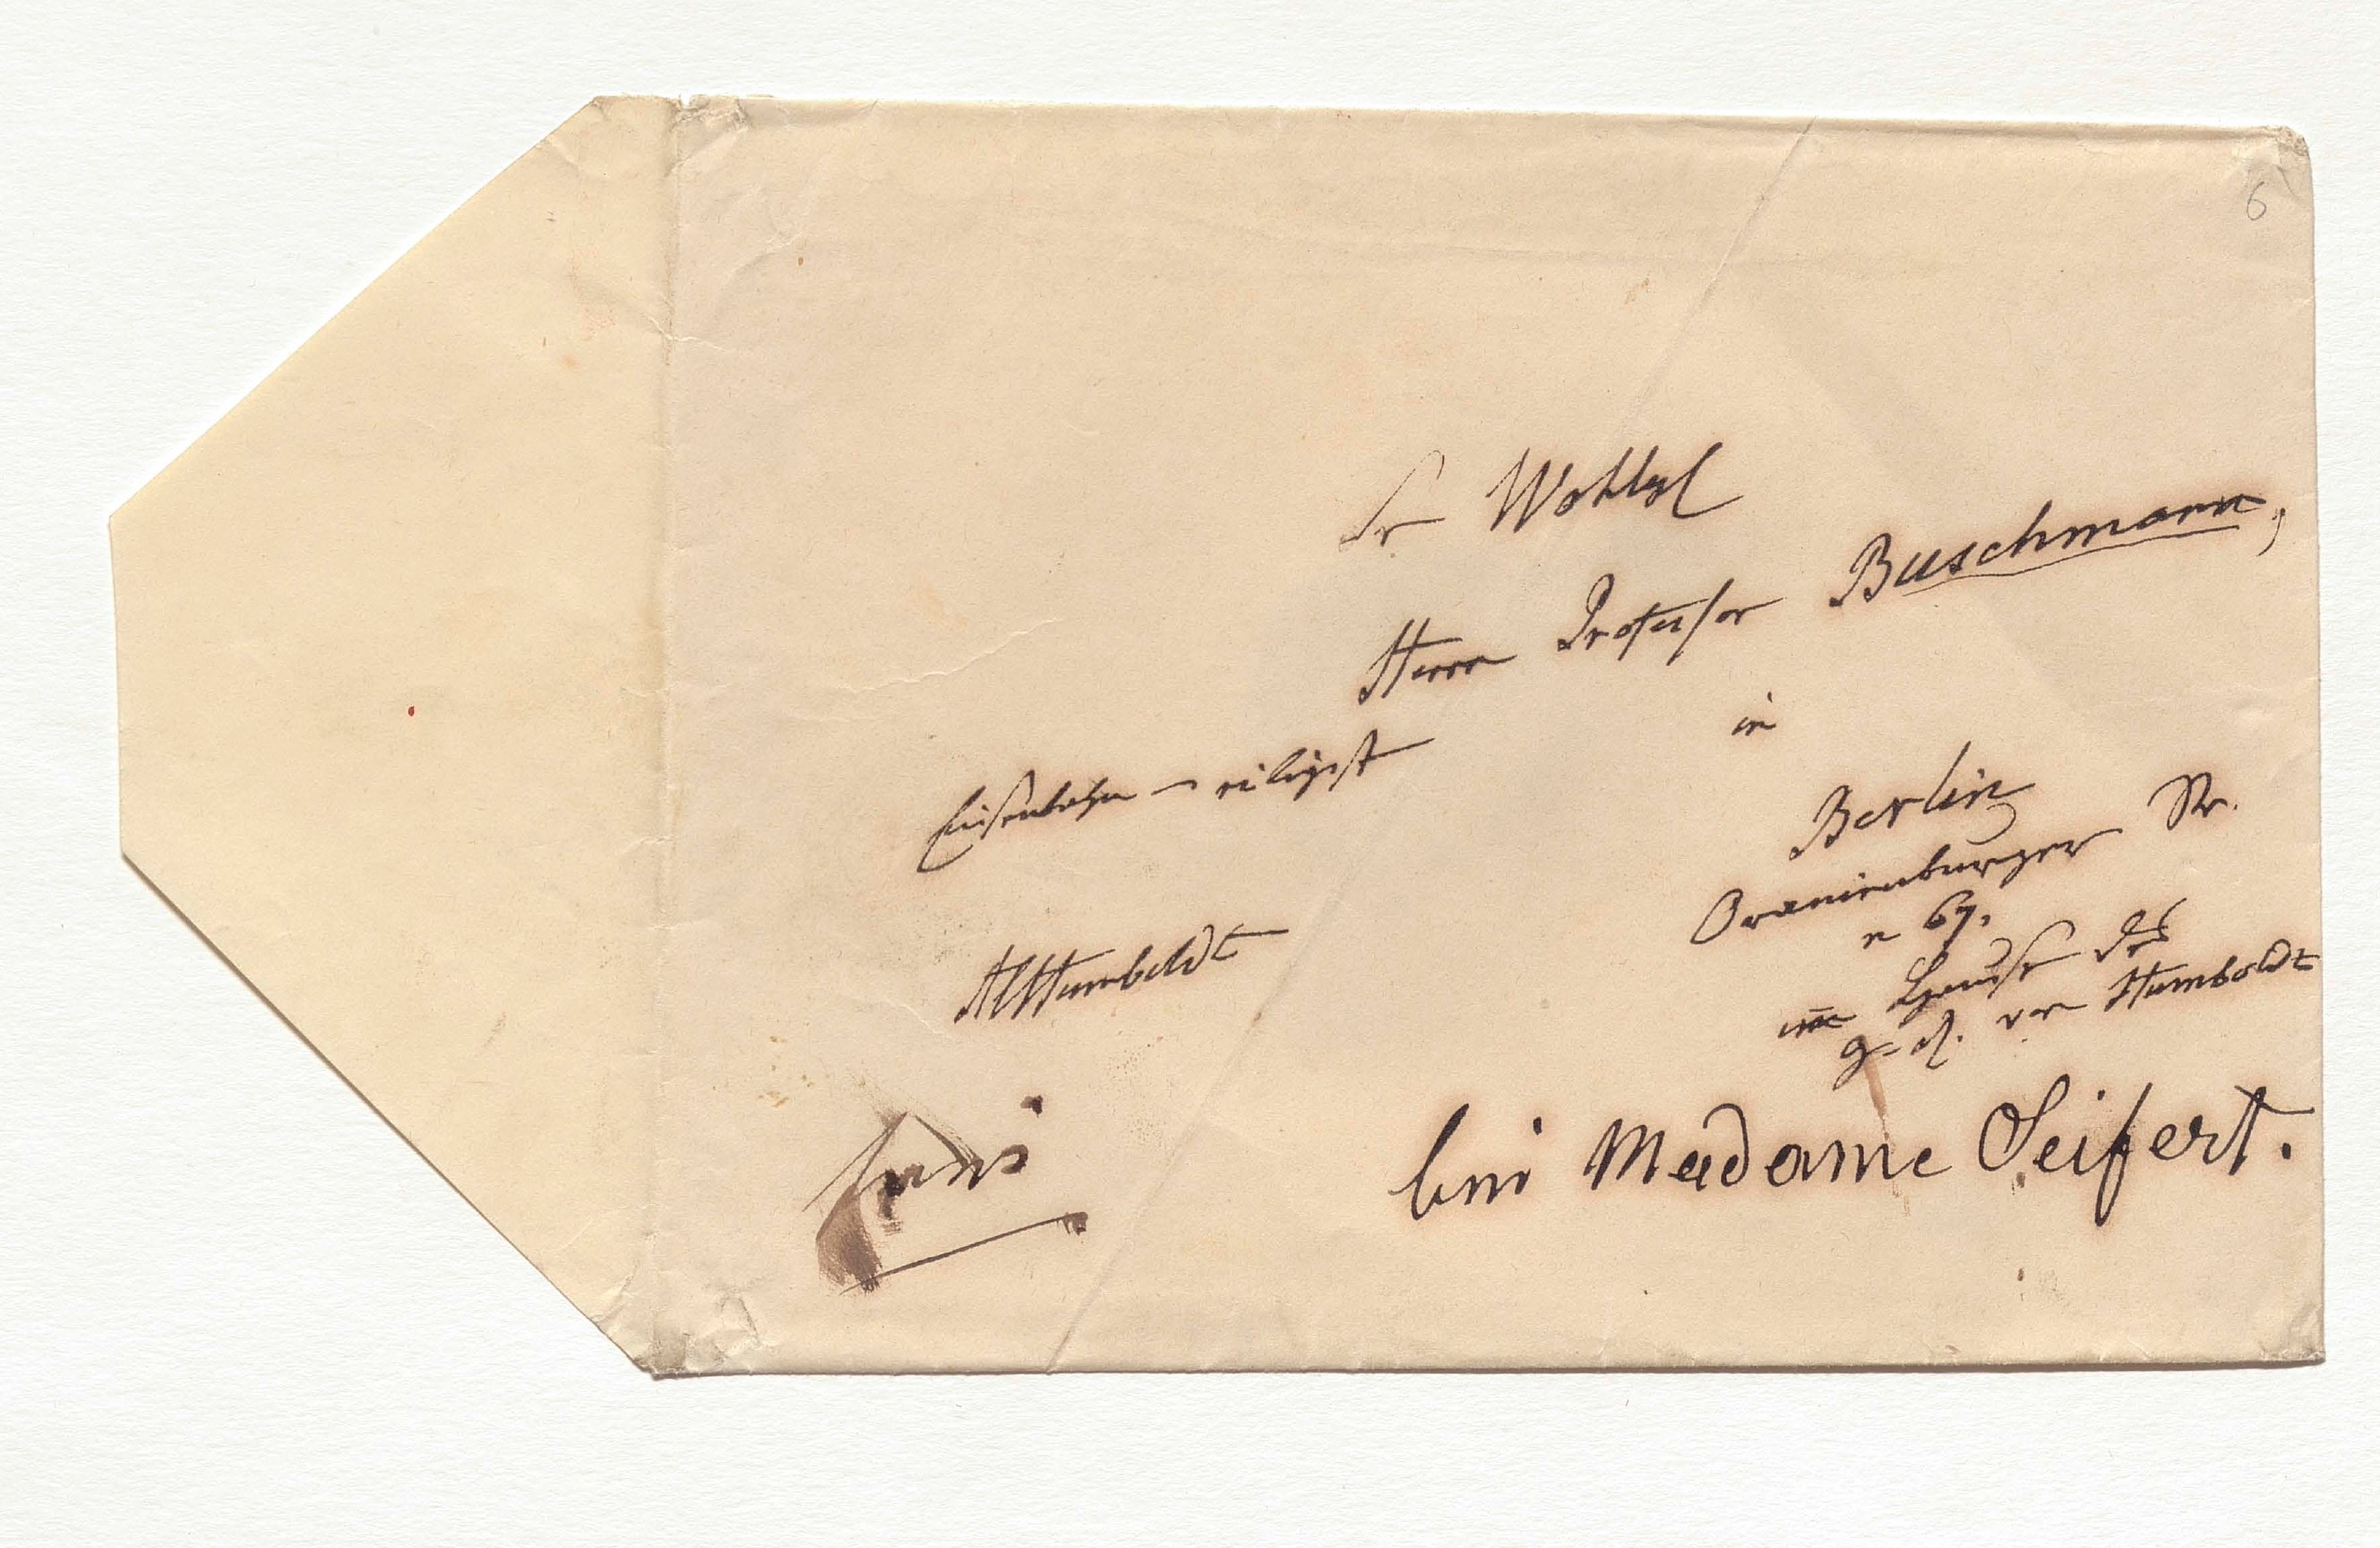 6
Sr Wohlgb
Herrn Professor Buschmann,
in
Berlin
Oranienburger Str.
n 67.
im Hause des
g. R. von Humboldt
bei Madame Seifert.
Eisenbahn – eiligst
AlHumboldt
frei